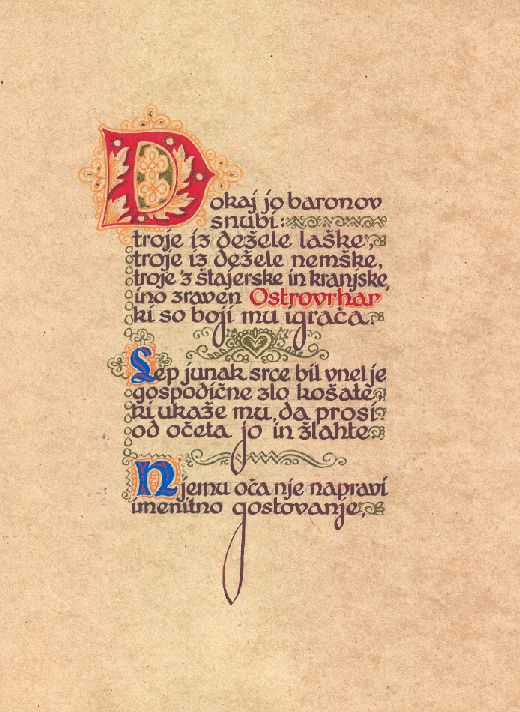 Dokaj jo baronov
snubi:
troje iz dežele laške,
troje iz dežele nemške,
troje 'z štajerske in kranjske,
ino zraven Ostrovrhar
ki so boji mu igrača.
Lep junak srce bil vnel je
gospodične zlo košate,
ki ukaže mu, da prosi
od očeta jo in žlahte.
Njemu oča nje napravi
imenitno gostovanje,